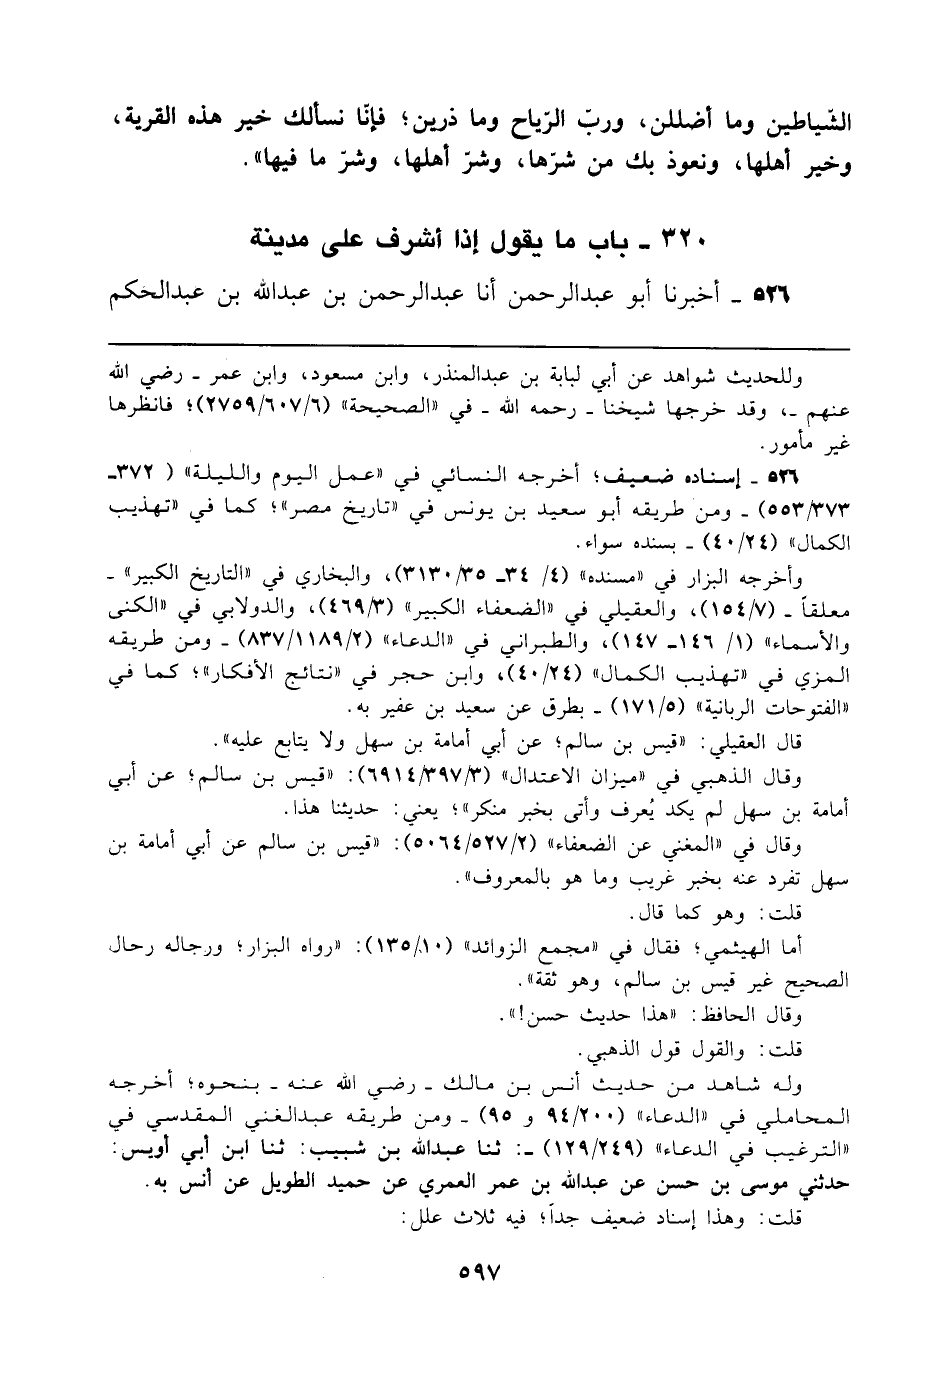 الشّياطين وما أضللن، وربّ الرّياح وما ذرين؛ فإنّا نسألك خير هذه القرية،
وخير أهلها، ونعوذ بك من شرّها، وشرّ أهلها، وشرّ ما فيها».
٣٢٠ ـ باب ما يقول إذا أشرف على مدينة
٥٢٦ ـ أخبرنا أبو عبدالرحمن أنا عبدالرحمن بن عبدالله بن عبدالحكم
وللحديث شواهد عن أبي لبابة بن عبدالمنذر، وابن مسعود، وابن عمر ـ رضي الله
عنهم ـ، وقد خرجها شيخنا ـ رحمه الله ـ في «الصحيحة» (٢٧٥٩/٦٠٧/٦)؛ فانظرها
غير مأمور.
٥٢٦ ـ إسناده ضعيف؛ أخرجه النسائي في «عمل اليوم والليلة» ( ٣٧٢ـ
٥٥٣/٣٧٣) ـ ومن طريقه أبو سعيد بن يونس في «تاريخ مصر»؛ كما في «تهذيب
الكمال» (٤٠/٢٤) ـ بسنده سواء.
وأخرجه البزار في «مسنده» (٤/ ٣٤ـ ٣١٣٠/٣٥)، والبخاري في «التاريخ الكبير» ـ
معلقاً ـ (١٥٤/٧)، والعقيلي في «الضعفاء الكبير» (٤٦٩/٣)، والدولابي في «الكنى
والأسماء» (١/ ١٤٦ـ ١٤٧)، والطبراني في «الدعاء» (٨٣٧/١١٨٩/٢) ـ ومن طريقه
المزي في «تهذيب الكمال» (٤٠/٢٤)، وابن حجر في «نتائج الأفكار»؛ كما في
«الفتوحات الربانية» (١٧١/٥) ـ بطرق عن سعيد بن عفير به.
قال العقيلي: «قيس بن سالم؛ عن أبي أمامة بن سهل ولا يتابع عليه».
وقال الذهبي في «ميزان الاعتدال» (٦٩١٤/٣٩٧/٣): «قيس بن سالم؛ عن أبي
أمامة بن سهل لم يكد يُعرف وأتى بخبر منكر»؛ يعني: حديثنا هذا.
وقال في «المغني عن الضعفاء» (٥٠٦٤/٥٢٧/٢): «قيس بن سالم عن أبي أمامة بن
سهل تفرد عنه بخبر غريب وما هو بالمعروف».
قلت: وهو كما قال.
أما الهيثمي؛ فقال في «مجمع الزوائد» (١٣٥/١٠): «رواه البزار؛ ورجاله رحال
الصحيح غير قيس بن سالم، وهو ثقة».
وقال الحافظ: «هذا حديث حسن!».
قلت: والقول قول الذهبي.
وله شاهد من حديث أنس بن مالك ـ رضي الله عنه ـ بنحوه؛ أخرجه
المحاملي في «الدعاء» (٩٤/٢٠٠ و ٩٥) ـ ومن طريقه عبدالغني المقدسي في
«الترغيب في الدعاء» (١٢٩/٢٤٩) ـ: ثنا عبدالله بن شبيب: ثنا ابن أبي أويس:
حدثني موسى بن حسن عن عبدالله بن عمر العمري عن حميد الطويل عن أنس به.
قلت: وهذا إسناد ضعيف جداً؛ فيه ثلاث علل:
٥٩٧